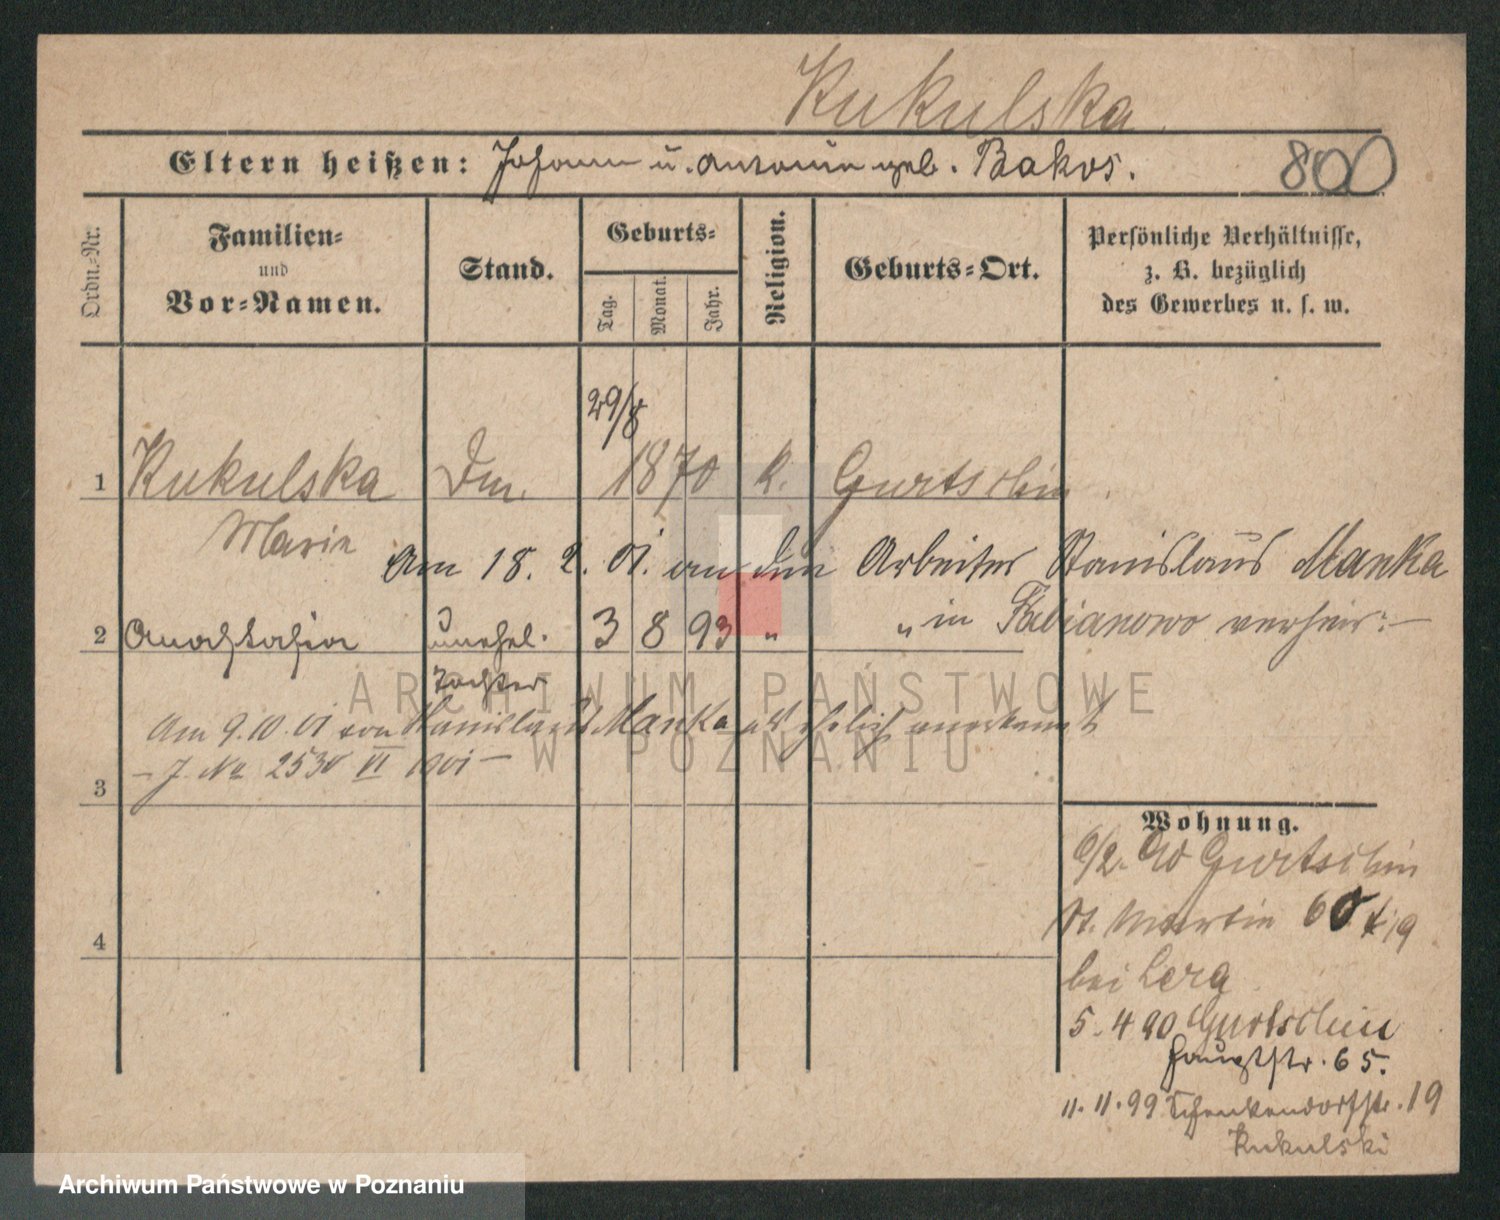 Kukulska
Eltern heißen: Johann u. Antonin geb. Bakos.
800
Ordn.-Nr.
Familien-
und
Vor-Namen.
Stand.
Geburts-
Tag.
Monat.
Jahr.
Religion.
Geburts-Ort.
Persönliche Verhältnisse,
z. B. bezüglich
des Gewerbes u. s. w.
29/8
1 Kukulska 1870 k. Gurtschin
Marie
Am 18. 2. 01. an den Arbeiter Stanislaus Manka
in Fabianowo verheir:
2 Anastasia unehel. 3 8 93 "
Tochter
Am 9.10.01 von Stanislaus Manka als ehelich anerkannt
- J. No 2530 VI 1901 -
3
4
Wohnung.
Gurtschin
St. Martin 60
bei Berg
5.4 90 Gurtschin
Hauptstr. 65.
11.11.99 Schenkendorfstr. 19
Kukulski
ARCHIWUM PAŃSTWOWE
W POZNANIU
Archiwum Państwowe w Poznaniu